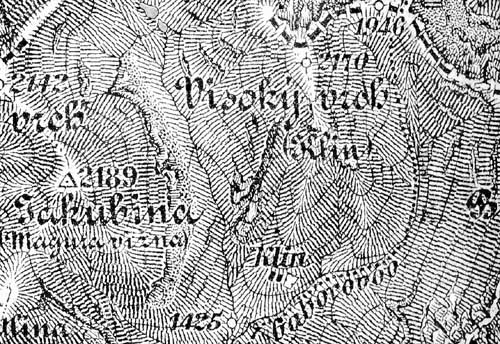 1946
2170
2142
Visoký vrch
vrch
(Klin)
2189
Jakubina
(Magura vizna)
Klin
Gaborovoo
1425